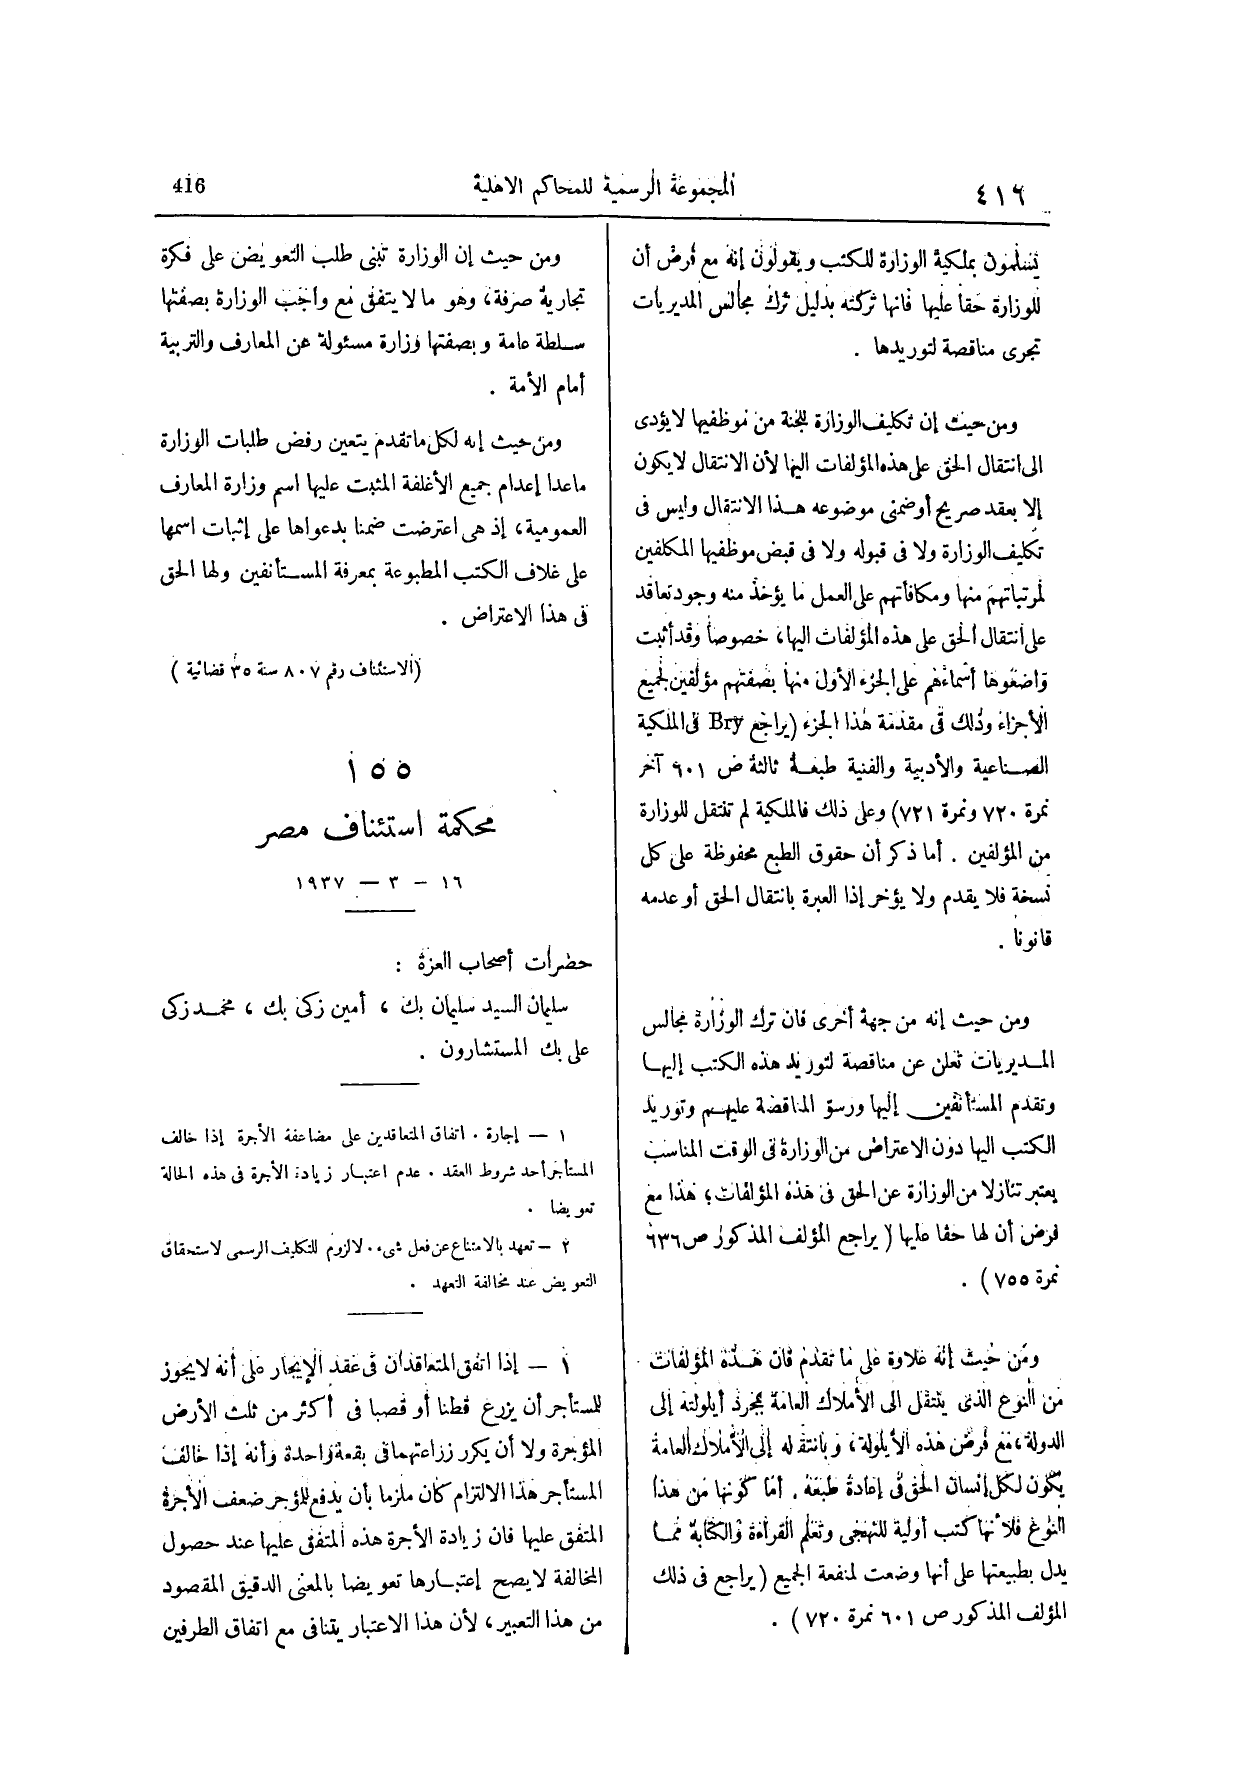 ٤١٦
المجموعة الرسمية للمحاكم الاهلية
416
يسلمون بملكية الوزارة للكتب ويقولون إنه مع فرض أن
للوزارة حقا عليها فانها تركته بدليل ترك مجالس المديريات
تجرى مناقصة لتوريدها .
ومن حيث إن تكليف الوزارة للجنة من موظفيها لا يؤدى
الى انتقال الحق على هذه المؤلفات اليها لأن الانتقال لا يكون
إلا بعقد صريح أوضمنى موضوعه هذا الانتقال وليس فى
تكليف الوزارة ولا فى قبوله ولا فى قبض موظفيها المكلفين
لمرتباتهم منها ومكافأتهم على العمل ما يؤخذ منه وجود تعاقد
على انتقال الحق على هذه المؤلفات اليها، خصوصا وقد أثبت
واضعوها أسماءهم على الجزء الأول منها بصفتهم مؤلفين لجميع
الأجزاء وذلك فى مقدمة هذا الجزء (يراجع Bry فى الملكية
الصناعية والأدبية والفنية طبعة ثالثة ص ٦٠١ آخر
نمرة ٧٢٠ ونمرة ٧٢١) وعلى ذلك فالملكية لم تنتقل للوزارة
من المؤلفين . أما ذكر أن حقوق الطبع محفوظة على كل
نسخة فلا يقدم ولا يؤخر إذا العبرة بانتقال الحق أو عدمه
قانونا .
ومن حيث إنه من جهة أخرى فان ترك الوزارة مجالس
المديريات تعلن عن مناقصة لتوريد هذه الكتب إليها
وتقدم المستأنفين إليها ورسو المناقصة عليهم وتوريد
الكتب اليها دون الاعتراض من الوزارة فى الوقت المناسب
يعتبر تنازلا من الوزارة عن الحق فى هذه المؤلفات؛ هذا مع
فرض أن لها حقا عليها (يراجع المؤلف المذكور ص ٦٣٦
نمرة ٧٥٥) .
ومن حيث إنه علاوة على ما تقدم فان هذه المؤلفات
من النوع الذى ينتقل الى الأملاك العامة بمجرد أيلولته إلى
الدولة، مع فرض هذه الأيلولة، وبانتقاله إلى الأملاك العامة
يكون لكل إنسان الحق فى إعادة طبعه . أما كونها من هذا
النوع فلأنها كتب أولية للتهجى وتعلم القراءة والكتابة مما
يدل بطبيعتها على أنها وضعت لمنفعة الجميع (يراجع فى ذلك
المؤلف المذكور ص ٦٠١ نمرة ٧٢٠) .
ومن حيث إن الوزارة تبنى طلب التعويض على فكرة
تجارية صرفة، وهو ما لا يتفق مع واجب الوزارة بصفتها
سلطة عامة وبصفتها وزارة مسئولة عن المعارف والتربية
أمام الأمة .
ومن حيث إنه لكل ما تقدم يتعين رفض طلبات الوزارة
ماعدا إعدام جميع الأغلفة المثبت عليها اسم وزارة المعارف
العمومية، إذ هى اعترضت ضمنا بدعواها على إثبات اسمها
على غلاف الكتب المطبوعة بمعرفة المستأنفين ولها الحق
فى هذا الاعتراض .
(الاستئناف رقم ٨٠٧ سنة ٣٥ قضائية)
١٥٥
محكمة استئناف مصر
١٦ - ٣ — ١٩٣٧
حضرات أصحاب العزة :
سليمان السيد سليمان بك ، أمين زكى بك ، محمد زكى
على بك المستشارون .
١ — إجارة . اتفاق المتعاقدين على مضاعفة الأجرة إذا خالف
المستأجر أحد شروط العقد . عدم اعتبار زيادة الأجرة فى هذه الحالة
تعويضا .
٢ — تعهد بالامتناع عن فعل شىء . لا لزوم للتكليف الرسمى لاستحقاق
التعويض عند مخالفة التعهد .
١ — إذا اتفق المتعاقدان فى عقد الإيجار على أنه لا يجوز
للمستأجر أن يزرع قطنا أو قصبا فى أكثر من ثلث الأرض
المؤجرة ولا أن يكرر زراعتهما فى بقعة واحدة وأنه إذا خالف
المستأجر هذا الالتزام كان ملزما بأن يدفع للمؤجر ضعف الأجرة
المتفق عليها فان زيادة الأجرة هذه المتفق عليها عند حصول
المخالفة لا يصح إعتبارها تعويضا بالمعنى الدقيق المقصود
من هذا التعبير، لأن هذا الاعتبار يتنافى مع اتفاق الطرفين